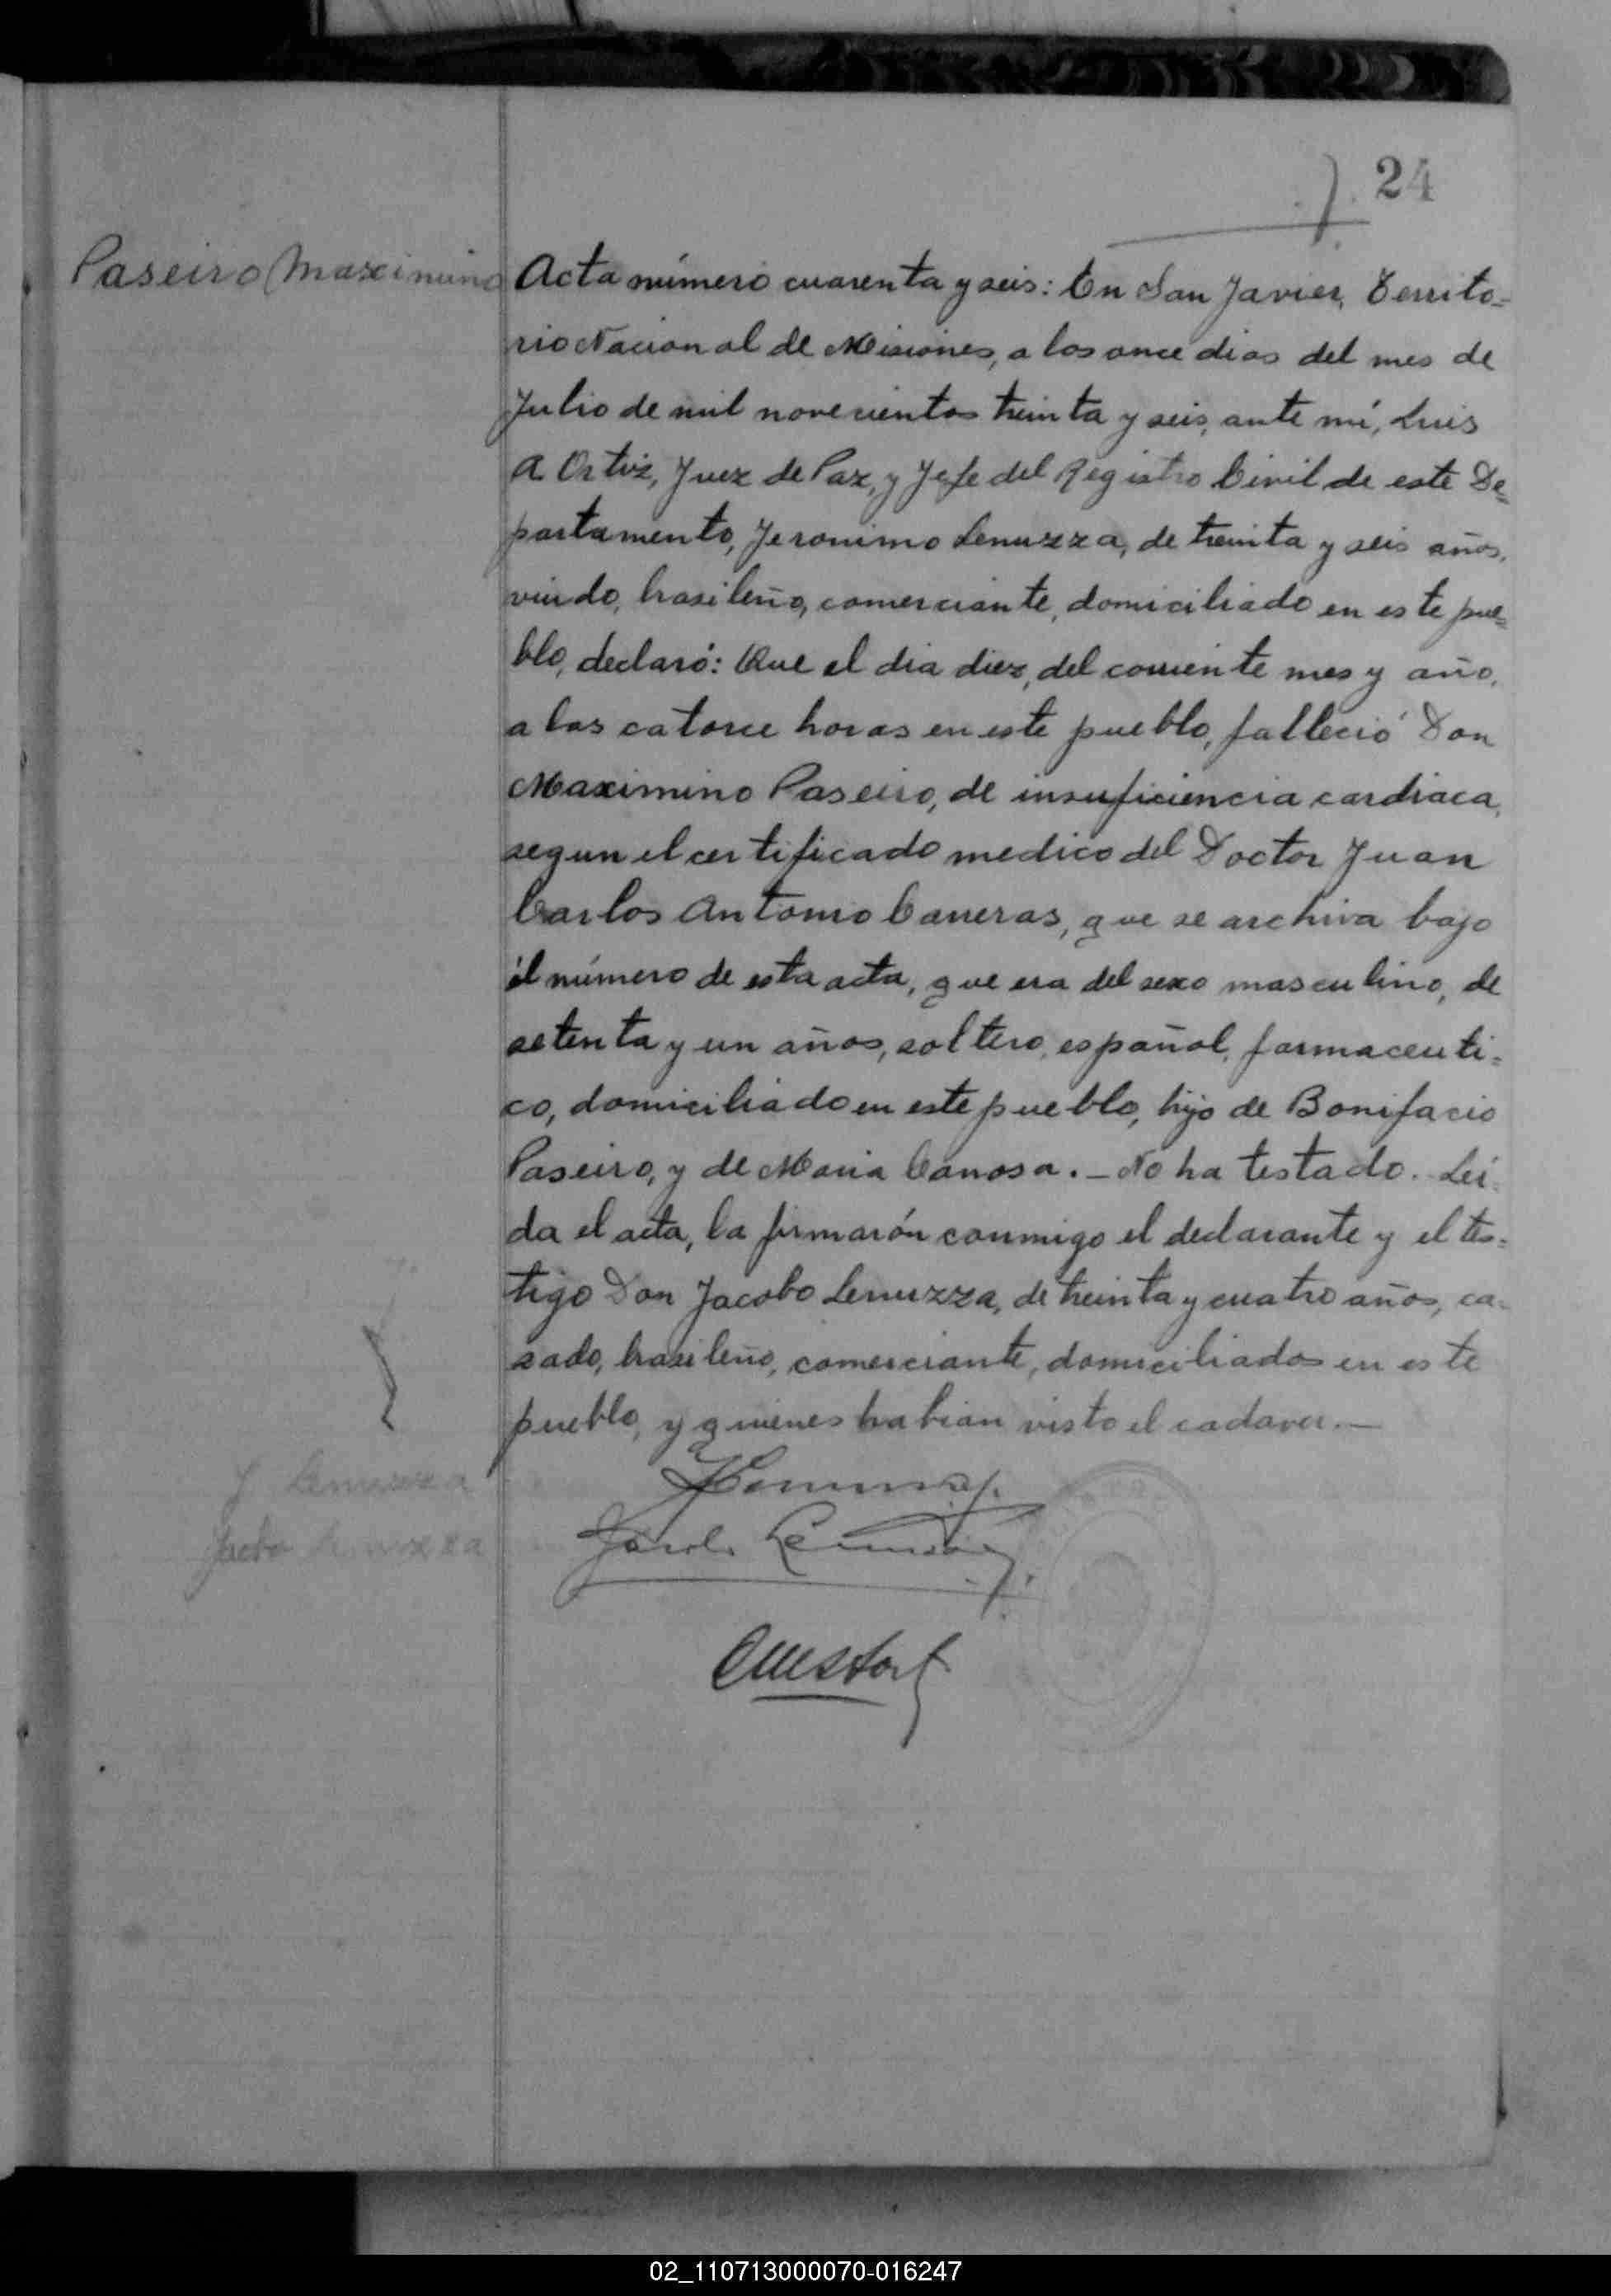 24
Paseiro Maximino
Acta número cuarenta y seis: En San Javier, Territo=
rio Nacional de Misiones, a los once dias del mes de
Julio de mil novecientos treinta y seis, ante mí, Luis
A. Ortiz, Juez de Paz, y Jefe del Registro Civil de este De=
partamento, Jeronimo Lenuzza, de treinta y seis años,
viudo, brasileño, comerciante, domiciliado en este pue=
blo, declaró: Que el dia diez, del corriente mes y año,
a las catorce horas en este pueblo, falleció Don
Maximino Paseiro, de insuficiencia cardiaca,
segun el certificado medico del Doctor Juan
Carlos Antonio Carreras, que se archiva bajo
el número de esta acta, que era del sexo masculino, de
setenta y un años, soltero, español, farmaceuti=
co, domiciliado en este pueblo, hijo de Bonifacio
Paseiro, y de Maria Canosa. - No ha testado. Leí
da el acta, la firmarón conmigo el declarante y el tes=
tigo Don Jacobo Lenuzza, de treinta y cuatro años, ca=
sado, brasileño, comerciante, domiciliados en este
pueblo, y quienes habian visto el cadaver. —
J Lenuzza
Jacobo Lenuzza
02_110713000070-016247